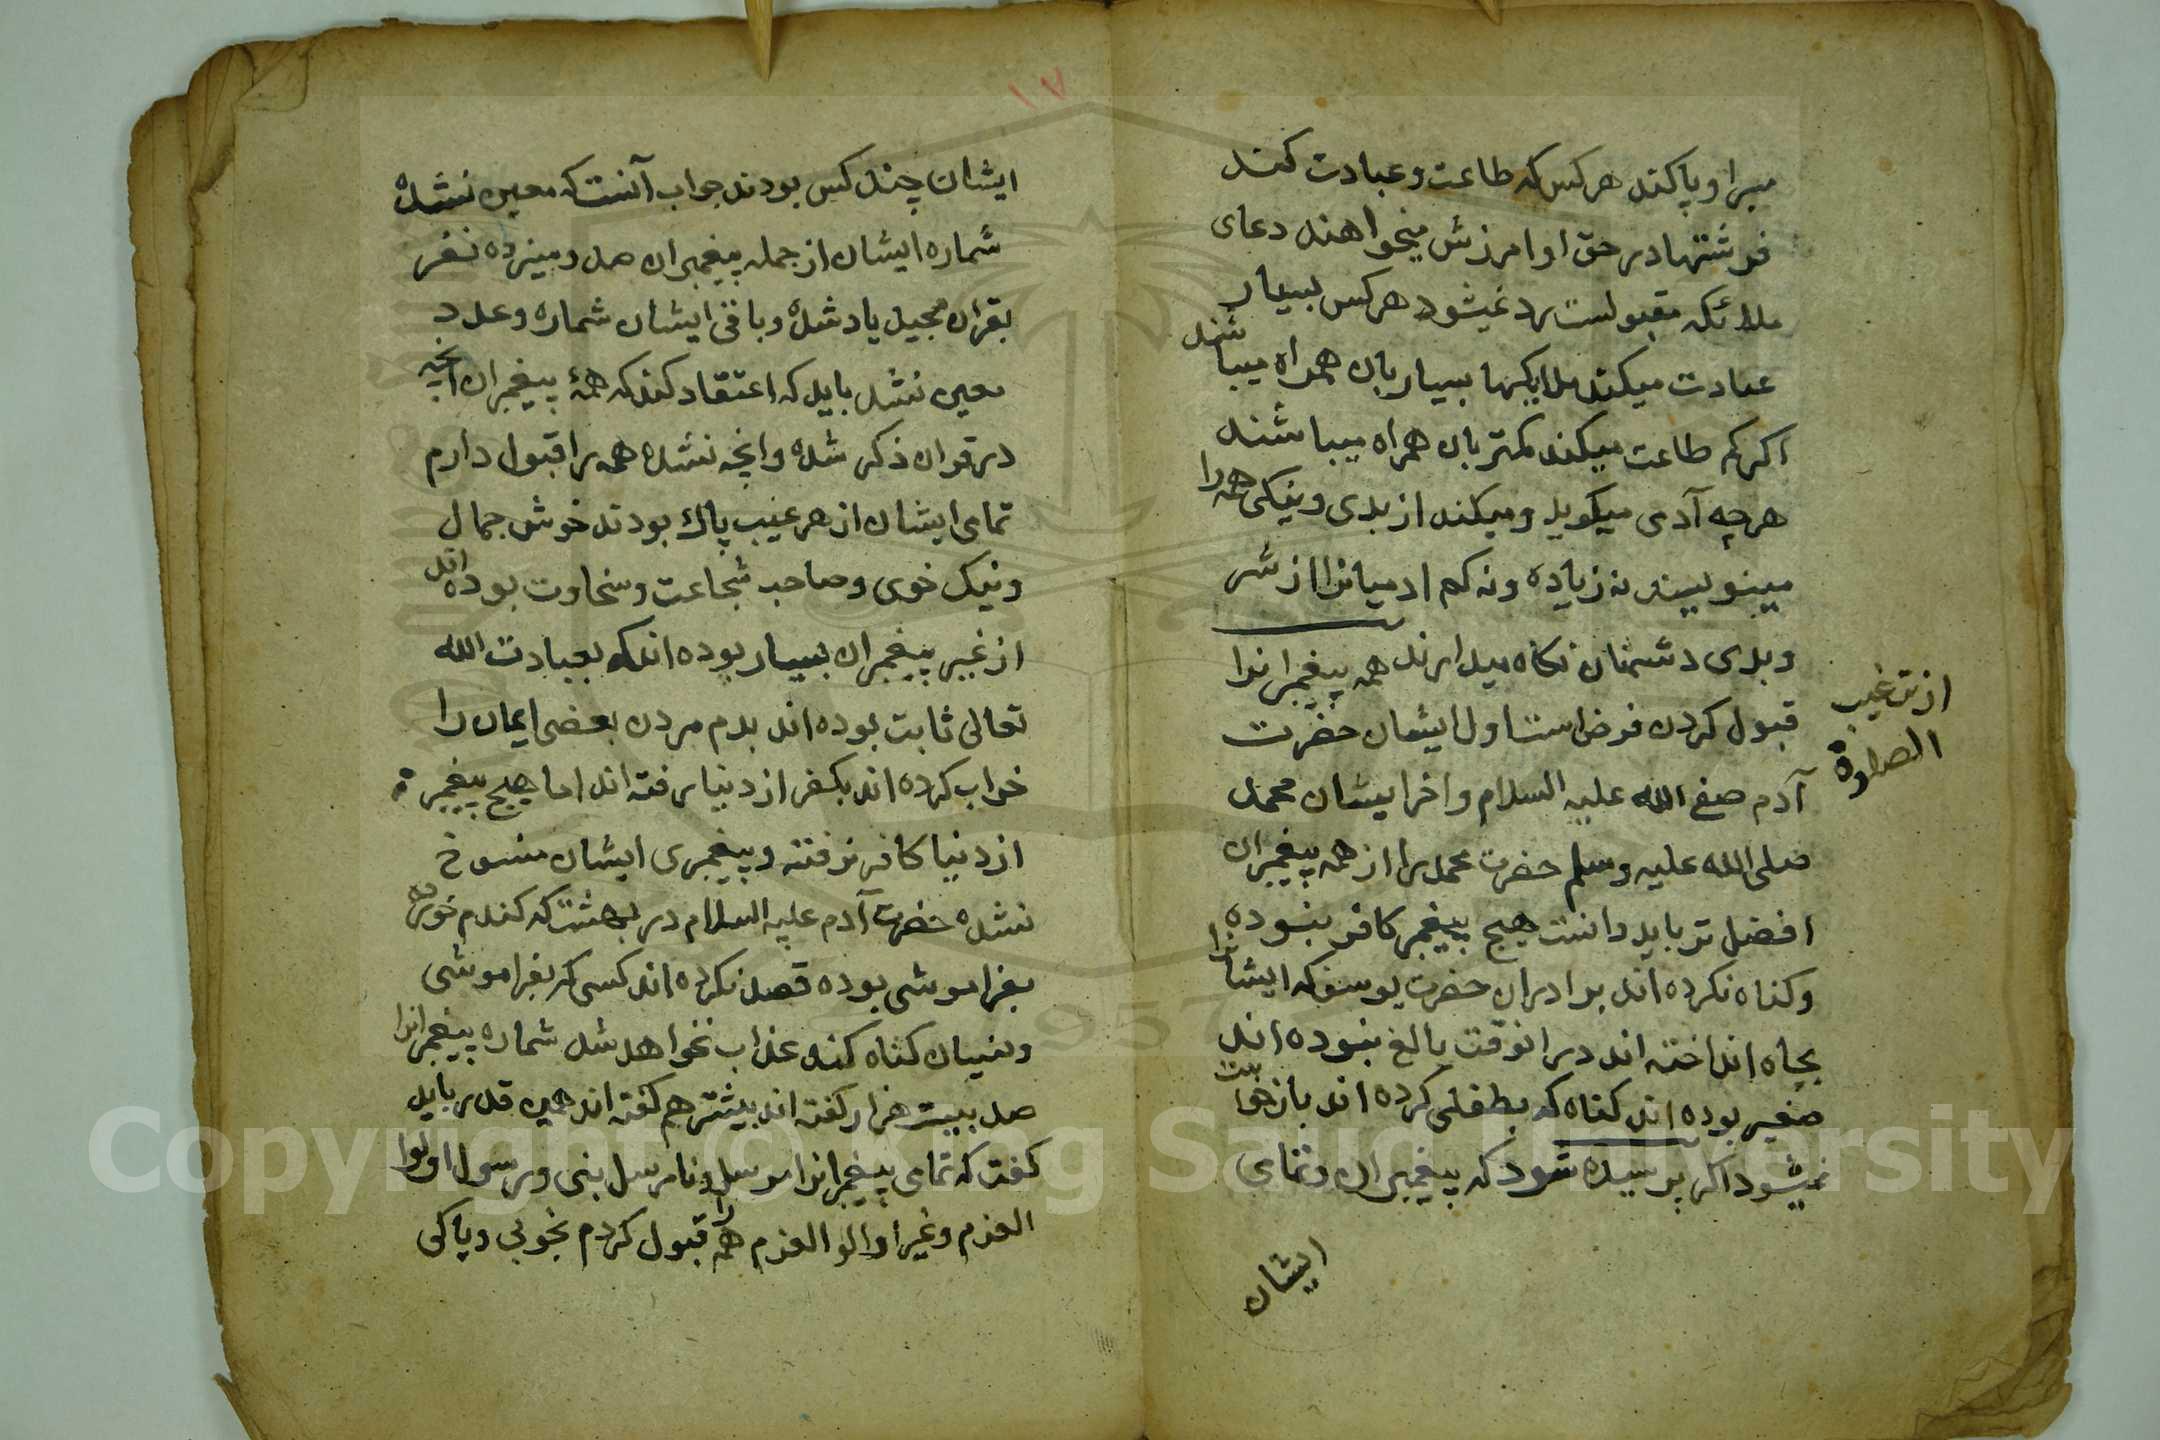 مبرا و پاکند هرکس که طاعت و عبادت کند
فرشتها در حق او امرزش میخواهند دعای
ملائکه مقبولست رد نمیشود هرکس بسیار
عبادت میکند ملایکها بسیار بان همراه میباشند
اکر کم طاعت میکند کمتر بان همراه میباشند
هرچه آدمی میکوید و میکند از بدی و نیکی همه را
مینویسند نه زیاده و نه کم ادمیانرا از شر
و بدی دشمنان نکاه میدارند همه پیغمبرانرا
قبول کردن فرض است اول ایشان حضرت
آدم صفی الله علیه السلام و اخر ایشان محمد
صلی الله علیه وسلم حضرت محمد را از همه پیغمبران
افضل تر باید دانست هیچ پیغمبر کافر نبوده
و کناه نکرده اند برادران حضرت یوسف که ایشانرا
بچاه انداخته اند در انوقت بالغ نبوده اند
صغیر بوده اند کناه که بطفلی کرده اند بازخواست
نمیشود اکر پرسیده شود که پیغمبران و تمامی
ایشان
از ترغیب
الصلوة
١٧
ایشان چند کس بودند جواب آنست که معین نشده
شماره ایشان از جمله پیغمبران صد و سیزده نفر
بقران مجید یاد شده و باقی ایشان شماره و عدد
معین نشد باید که اعتقاد کند که همۀ پیغمبران انچه
در قران ذکر شده و انچه نشده همه را قبول دارم
تمامی ایشان از هر عیب پاك بودند خوش جمال
و نیک خوی و صاحب شجاعت و سخاوت بوده اند
از غیر پیغمبران بسیار بوده اند که بعبادت الله
تعالی ثابت بوده اند بدم مردن بعضی ایمان را
خراب کرده اند بکفر از دنیا رفته اند اما هیچ پیغمبر
از دنیا کافر نرفته و پیغمبری ایشان منسوخ
نشده حضرت آدم علیه السلام در بهشت که کندم خورده
بفراموشی بوده قصد نکرده اند کسی که بفراموشی
و نسیان کناه کند عذاب نخواهد شد شماره پیغمبرانرا
صد بیست هزار کفته اند بیشتر هم کفته اند همین قدر باید
کفت که تمامی پیغمبرانرا مرسل و نامرسل نبی و رسول اولوا
العزم و غیر اولو العزم همه را قبول کردم بخوبی و پاکی